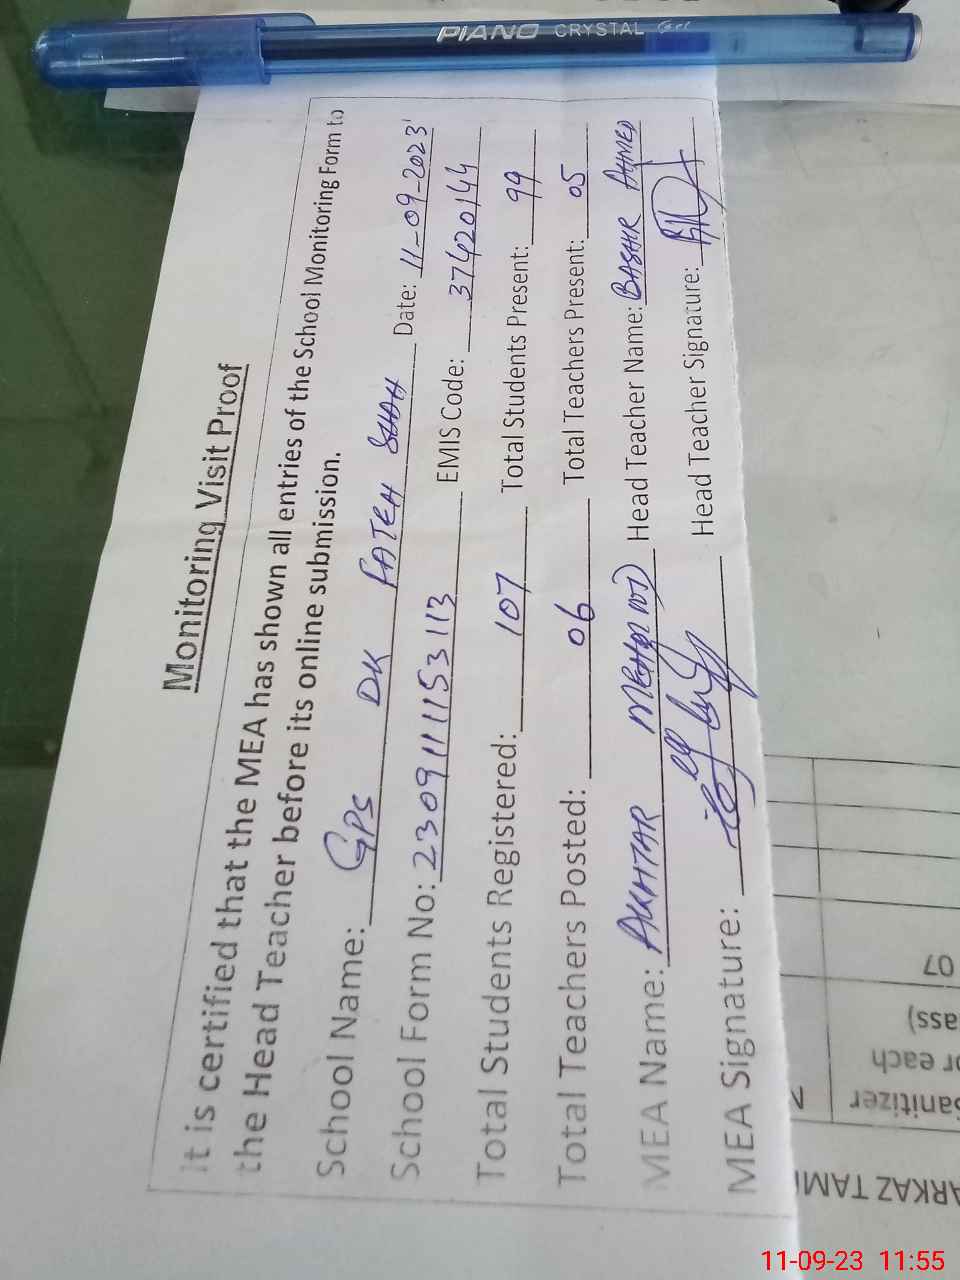 PIANO CRYSTAL Gel
Monitoring Visit Proof
It is certified that the MEA has shown all entries of the School Monitoring Form to
the Head Teacher before its online submission.
School Name: GPS DK FATEH SHAH Date: 11-09-2023
School Form No: 2309111153113 EMIS Code: 37420144
Total Students Registered: 107 Total Students Present: 99
Total Teachers Posted: 06 Total Teachers Present: 05
MEA Name: AKHTAR MEHMOOD Head Teacher Name: BASHIR AHMED
MEA Signature: Head Teacher Signature:
ARKAZ TAM
anitizer
or each
ass)
07
11-09-23 11:55